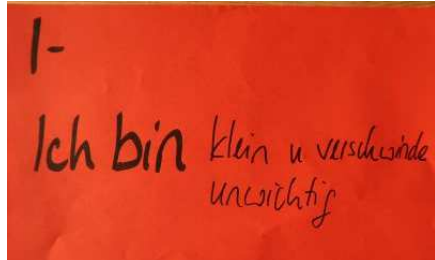 I-
Ich bin klein u verschwinde
unwichtig